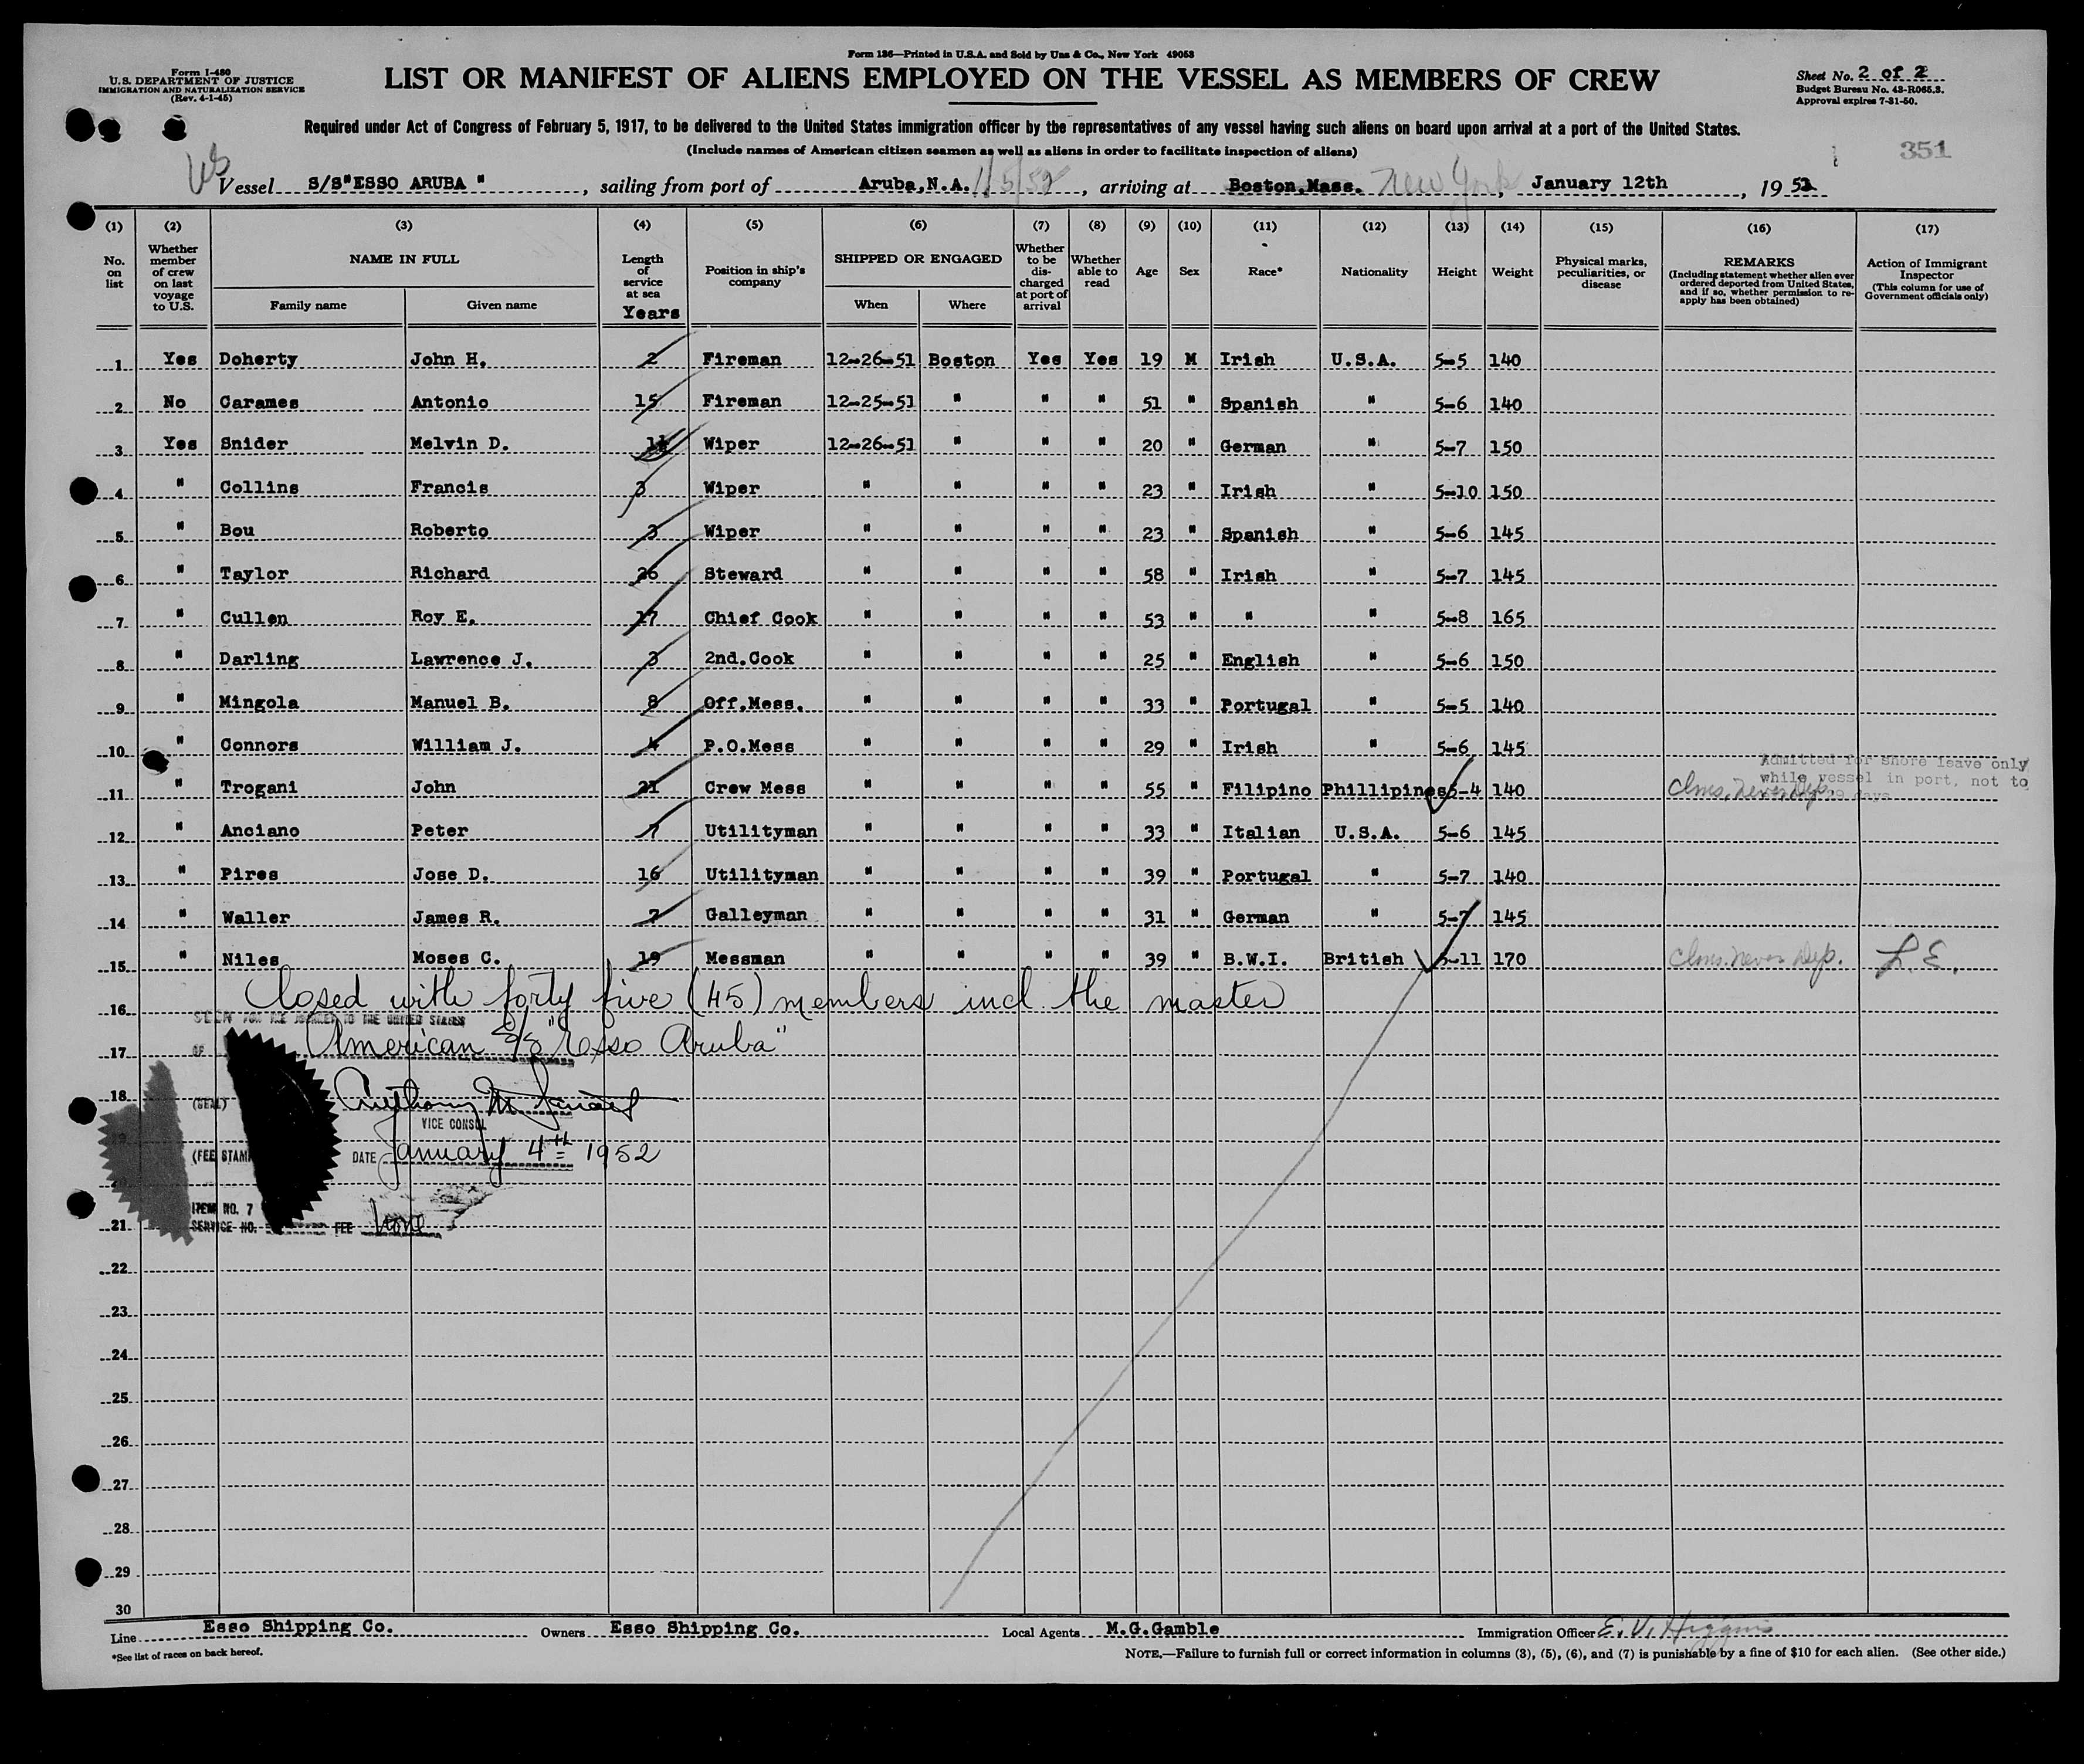 Form 136—Printed in U.S.A. and Sold by Unz & Co., New York 49053
Form I-480
U.S. DEPARTMENT OF JUSTICE
IMMIGRATION AND NATURALIZATION SERVICE
(Rev. 4-1-45)
LIST OR MANIFEST OF ALIENS EMPLOYED ON THE VESSEL AS MEMBERS OF CREW
Sheet No. 2 of 2
Budget Bureau No. 43-R065.3.
Approval expires 7-31-50.
Required under Act of Congress of February 5, 1917, to be delivered to the United States immigration officer by the representatives of any vessel having such aliens on board upon arrival at a port of the United States.
(Include names of American citizen seamen as well as aliens in order to facilitate inspection of aliens)
351
Vessel S/S"ESSO ARUBA", sailing from port of Aruba,N.A. 1/5/52, arriving at Boston,Mass. New York, January 12th, 1952
(1) (2) (3) (4) (5) (6) (7) (8) (9) (10) (11) (12) (13) (14) (15) (16) (17)
No. on list
Whether member of crew on last voyage to U.S.
NAME IN FULL
Family name
Given name
Length of service at sea
Years
Position in ship's company
SHIPPED OR ENGAGED
When
Where
Whether to be discharged at port of arrival
Whether able to read
Age
Sex
Race*
Nationality
Height
Weight
Physical marks, peculiarities, or disease
REMARKS
(Including statement whether alien ever ordered deported from United States, and if so, whether permission to reapply has been obtained)
Action of Immigrant Inspector
(This column for use of Government officials only)
1 Yes Doherty John H. 2 Fireman 12-26-51 Boston Yes Yes 19 M Irish U.S.A. 5-5 140
2 No Carames Antonio 15 Fireman 12-25-51 " " " 51 " Spanish " 5-6 140
3 Yes Snider Melvin D. Wiper 12-26-51 " " " 20 " German " 5-7 150
4 " Collins Francis 3 Wiper " " " " 23 " Irish " 5-10 150
5 " Bou Roberto 3 Wiper " " " " 23 " Spanish " 5-6 145
6 " Taylor Richard 26 Steward " " " " 58 " Irish " 5-7 145
7 " Cullen Roy E. 17 Chief Cook " " " " 53 " " " 5-8 165
8 " Darling Lawrence J. 3 2nd.Cook " " " " 25 " English " 5-6 150
9 " Mingola Manuel B. 8 Off.Mess. " " " " 33 " Portugal " 5-5 140
10 " Connors William J. 4 P.O.Mess " " " " 29 " Irish " 5-6 145
Admitted for shore leave only
while vessel in port, not to
11 " Trogani John 21 Crew Mess " " " " 55 " Filipino Phillipines 5-4 140 Clms. never Dep. 29 days
12 " Anciano Peter 7 Utilityman " " " " 33 " Italian U.S.A. 5-6 145
13 " Pires Jose D. 16 Utilityman " " " " 39 " Portugal " 5-7 140
14 " Waller James R. 7 Galleyman " " " " 31 " German " 5-7 145
15 " Niles Moses C. 19 Messman " " " " 39 " B.W.I. British 5-11 170 Clms. never Dep. L.E.
16 Closed with forty five (45) members incl. the master
SEEN FOR THE JOURNEY TO THE UNITED STATES
17 OF American S/S "Esso Aruba"
18 (SEAL) Anthony M.
VICE CONSUL
(FEE STAMP
DATE January 4th 1952
ITEM NO. 7
21 SERVICE NO. FEE None
22
23
24
25
26
27
28
29
30
Line Esso Shipping Co. Owners Esso Shipping Co. Local Agents M.G.Gamble Immigration Officer E. V. Higgins
*See list of races on back hereof.
NOTE.—Failure to furnish full or correct information in columns (3), (5), (6), and (7) is punishable by a fine of $10 for each alien. (See other side.)